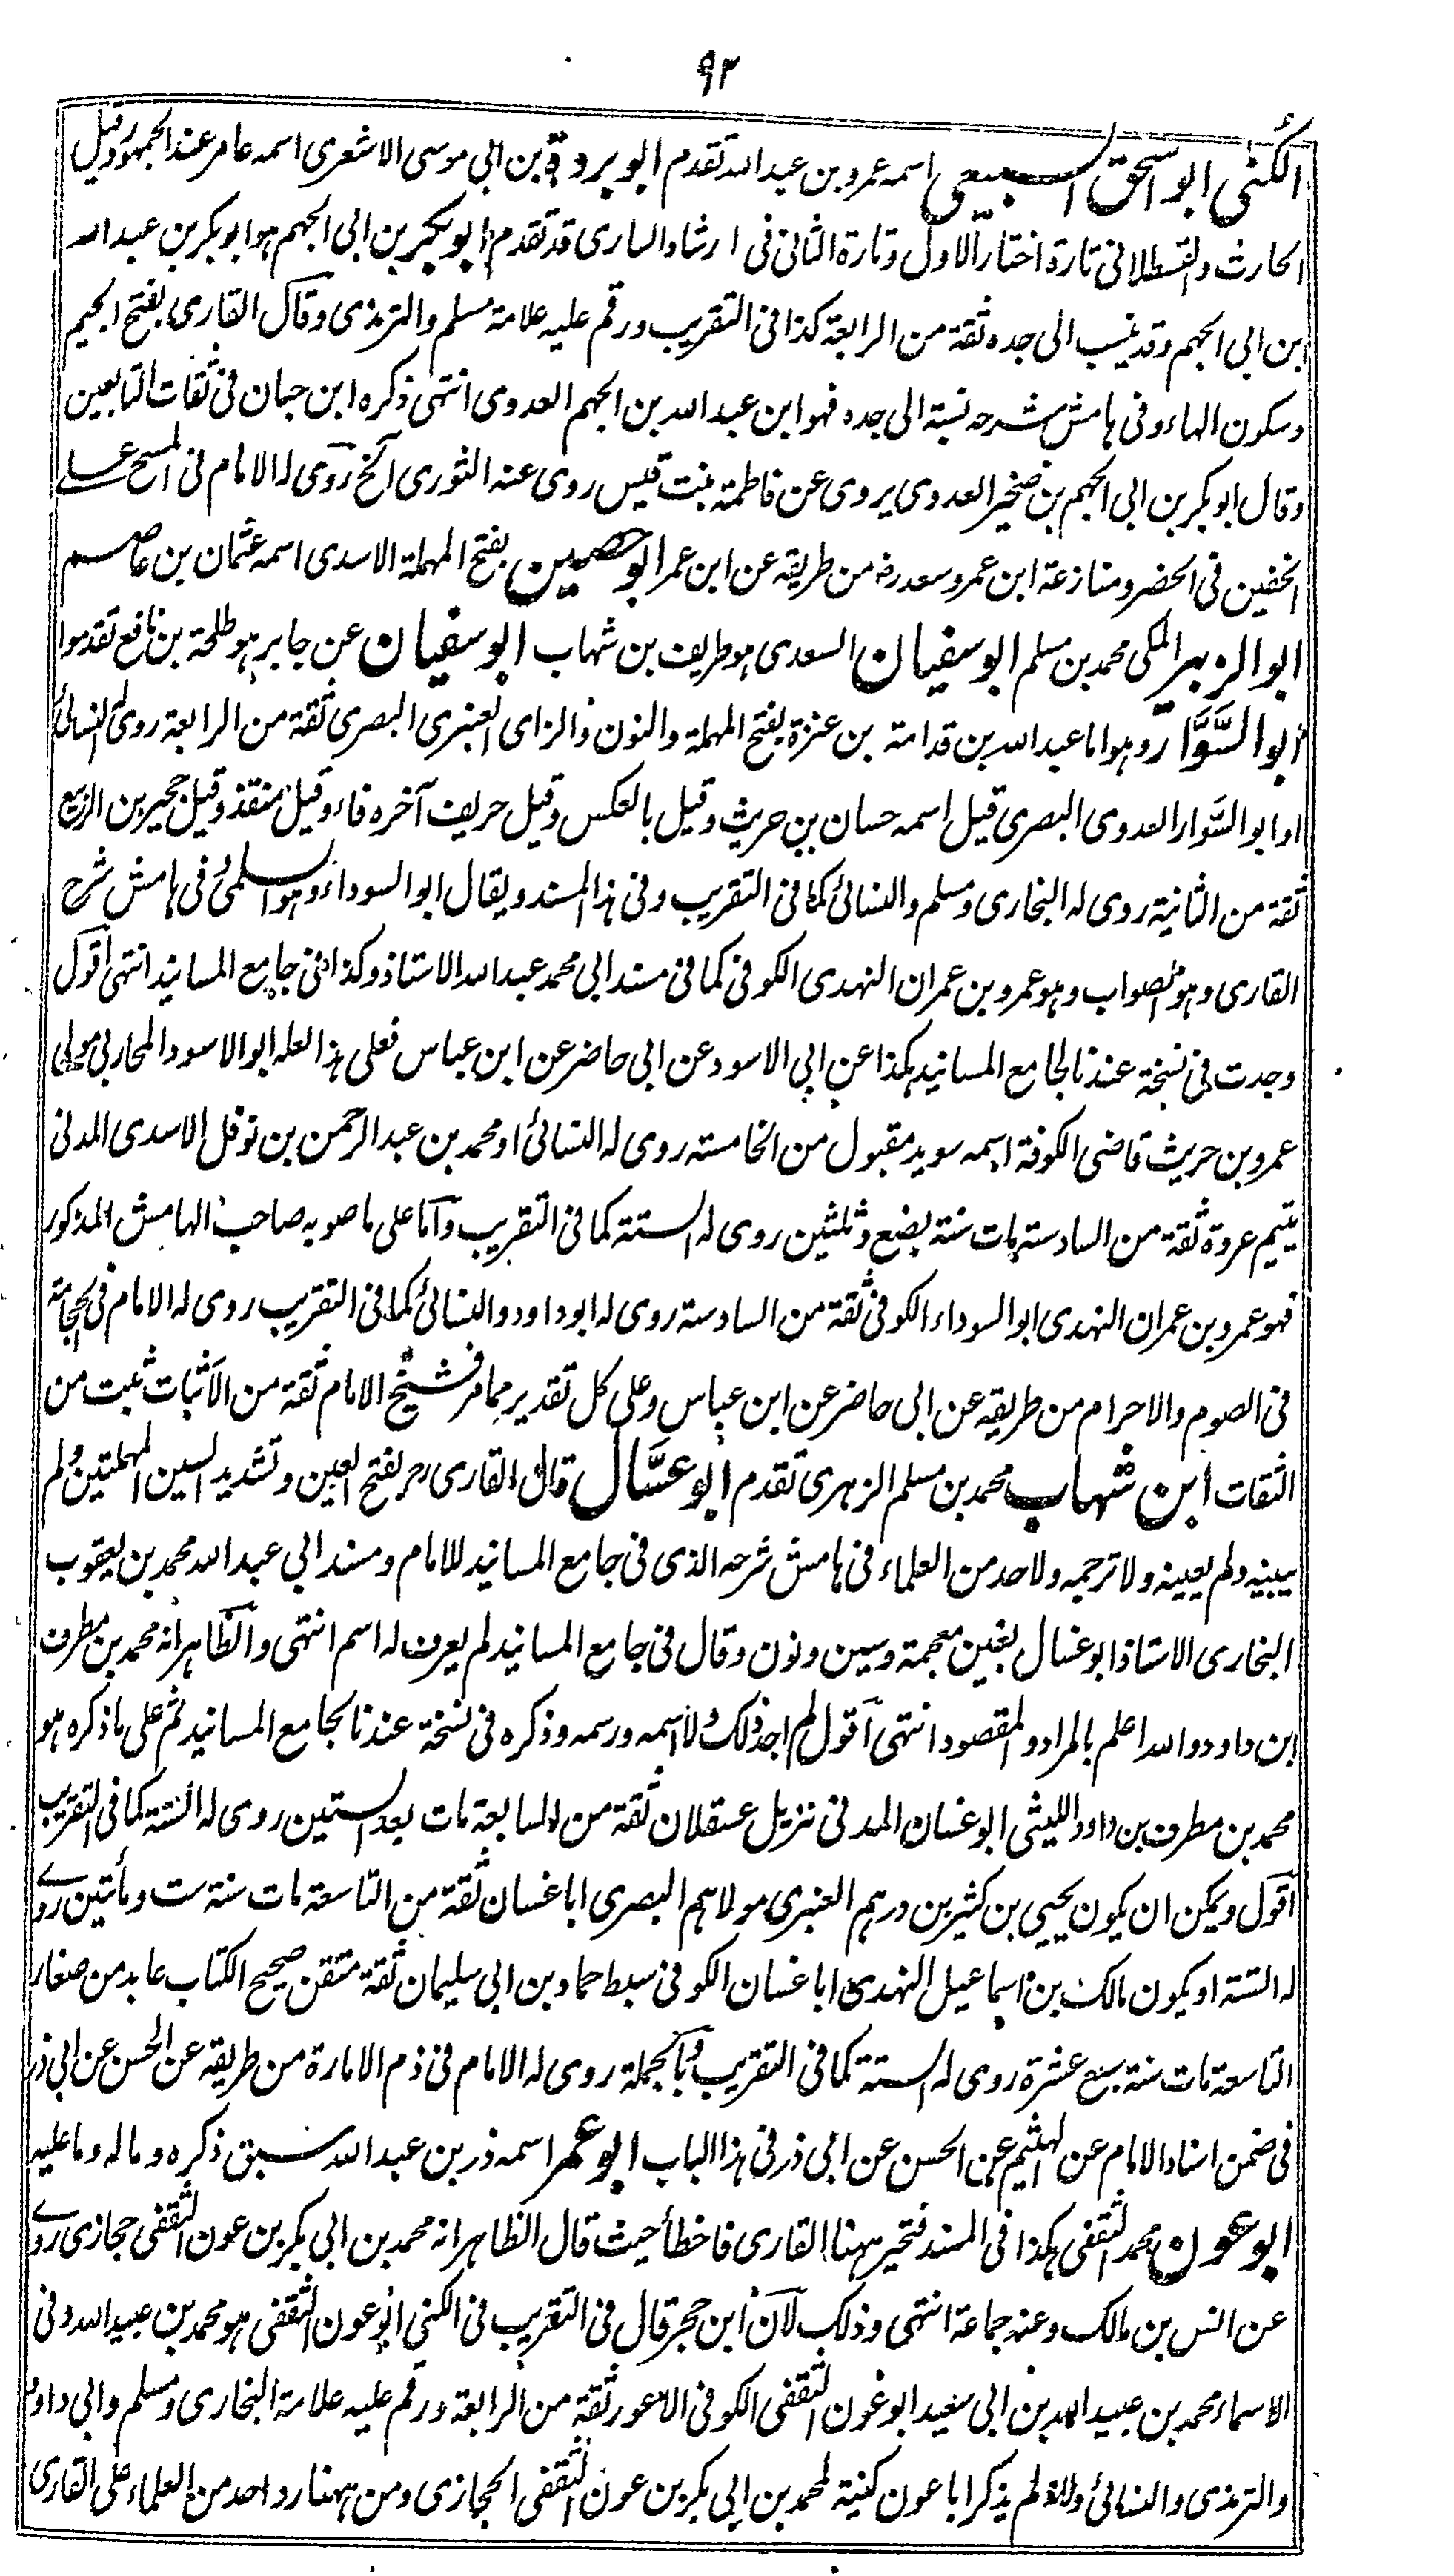 ٩٢
الكنى ابو اسحق السبيعى اسمه عمرو بن عبد الله تقدم ابو بردة بن ابى موسى الاشعرى اسمه عامر عند الجمهور وقيل
الحارث والقسطلانى تارة اختار الاول وتارة الثانى فى ارشاد السارى قد تقدم ابو بكر بن ابى الجهم هو ابو بكر بن عبد الله
ابن ابى الجهم وقد ينسب الى جده ثقة من الرابعة كذا فى التقريب ورقم عليه علامة مسلم والترمذى وقال القارى بفتح الجيم
وسكون الهاء وفى هامش شرحه نسبة الى جده فهو ابن عبد الله بن الجهم العدوى انتهى ذكره ابن حبان فى ثقات التابعين
وقال ابو بكر بن ابى الجهم بن صخير العدوى يروى عن فاطمة بنت قيس روى عنه الثورى الخ روى له الامام فى المسح على
الخفين فى الحضر ومنازعة ابن عمر وسعد رض من طريقه عن ابن عمر ابو حصين بفتح المهملة الاسدى اسمه عثمان بن عاصم
ابو الزبير المكى محمد بن مسلم ابو سفيان السعدى هو طريف بن شهاب ابو سفيان عن جابر هو طلحة بن نافع تقدموا
ابو السَّوَّار وهو اما عبد الله بن قدامة بن عنزة بفتح المهملة والنون والزاى العنبرى البصرى ثقة من الرابعة روى له النسائى
او ابو السَّوار العدوى البصرى قيل اسمه حسان بن حريث وقيل بالعكس وقيل حريف آخره فاء وقيل منقذ وقيل حجير بن الربيع
ثقة من الثانية روى له البخارى ومسلم والنسائى كما فى التقريب وفى هذا المسند ويقال ابو السوداء وهو السلمى وفى هامش شرح
القارى وهو الصواب وهو عمرو بن عمران النهدى الكوفى كما فى مسند ابى محمد عبد الله الاستاذ وكذا فى جامع المسانيد انتهى اقول
وجدت فى نسخة عندنا لجامع المسانيد هكذا عن ابى الاسود عن ابى حاضر عن ابن عباس فعلى هذا لعله ابو الاسود المحاربى مولى
عمرو بن حريث قاضى الكوفة اسمه سويد مقبول من الخامسة روى له النسائى او محمد بن عبد الرحمن بن نوفل الاسدى المدنى
يتيم عروة ثقة من السادسة مات سنة بضع وثلثين روى له الستة كما فى التقريب واما على ما صوبه صاحب الهامش المذكور
فهو عمرو بن عمران النهدى ابو السوداء الكوفى ثقة من السادسة روى له ابو داود والنسائى كما فى التقريب روى له الامام فى الحجامة
فى الصوم والاحرام من طريقه عن ابى حاضر عن ابن عباس وعلى كل تقدير مما مر فشيخ الامام ثقة من الاثبات ثبت من
الثقات ابن شهاب محمد بن مسلم الزهرى تقدم ابو عسَّال قال القارى رح بفتح العين وتشديد السين المهملتين ولم
يبينه ولم يعينه ولا ترجمه ولاحد من العلماء فى هامش شرحه الذى فى جامع المسانيد للامام ومسند ابى عبد الله محمد بن يعقوب
البخارى الاستاذ ابو غسال بغين معجمة وسين ونون وقال فى جامع المسانيد لم يعرف له اسم انتهى والظاهر انه محمد بن مطرف
ابن داود والله اعلم بالمراد والمقصود انتهى اقول لم اجد ذلك ولا اسمه ورسمه وذكره فى نسخة عندنا لجامع المسانيد ثم على ما ذكره هو
محمد بن مطرف بن داود الليثى ابو غسان المدنى نزيل عسقلان ثقة من السابعة مات بعد الستين روى له الستة كما فى التقريب
اقول ويمكن ان يكون يحيى بن كثير بن درهم العنبرى مولاهم البصرى ابا غسان ثقة من التاسعة مات سنة ست ومأتين روى
له الستة او يكون مالك بن اسماعيل النهدى ابا غسان الكوفى سبط حماد بن ابى سليمان ثقة متقن صحيح الكتاب عابد من صغار
التاسعة مات سنة سبع عشرة روى له الستة كما فى التقريب وبالجملة روى له الامام فى ذم الامارة من طريقه عن الحسن عن ابى ذر
فى ضمن اسناد الامام عن الهثيم عن الحسن عن ابى ذر فى هذا الباب ابو عمر اسمه ذر بن عبد الله سبق ذكره وما له وما عليه
ابو عون محمد الثقفى هكذا فى المسند فتحير ههنا القارى فاخطأ حيث قال الظاهر انه محمد بن ابى بكر بن عون الثقفى حجازى روى
عن انس بن مالك وعنه جماعة انتهى وذلك لان ابن حجر قال فى التقريب فى الكنى ابو عون الثقفى هو محمد بن عبيد الله وفى
الاسماء محمد بن عبيد الله بن ابى سعيد ابو عون الثقفى الكوفى الاعور ثقة من الرابعة ورقم عليه علامة البخارى ومسلم وابى داود
والترمذى والنسائى ولم يذكر ابا عون كنية لمحمد بن ابى بكر بن عون الثقفى الحجازى ومن ههنا رد احد من العلماء على القارى